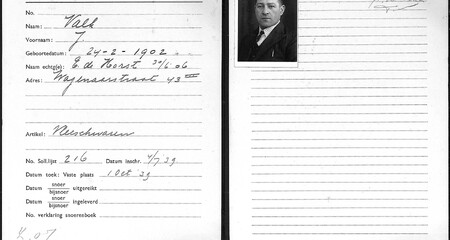 Naam: Valk
Voornaam: J
Geboortedatum: 24-2-1902
Naam echtg(e): E de Horst 30/6 06
Adres: Wagenaarstraat 43 III
Artikel: Vleeschwaren
No. Soll.lijst 216 Datum inschr. 4/7 39
Datum toek: Vaste plaats 1 Oct 39
Datum snoer
bijsnoer uitgereikt
Datum snoer
bijsnoer ingeleverd
No. verklaring snoereeboek